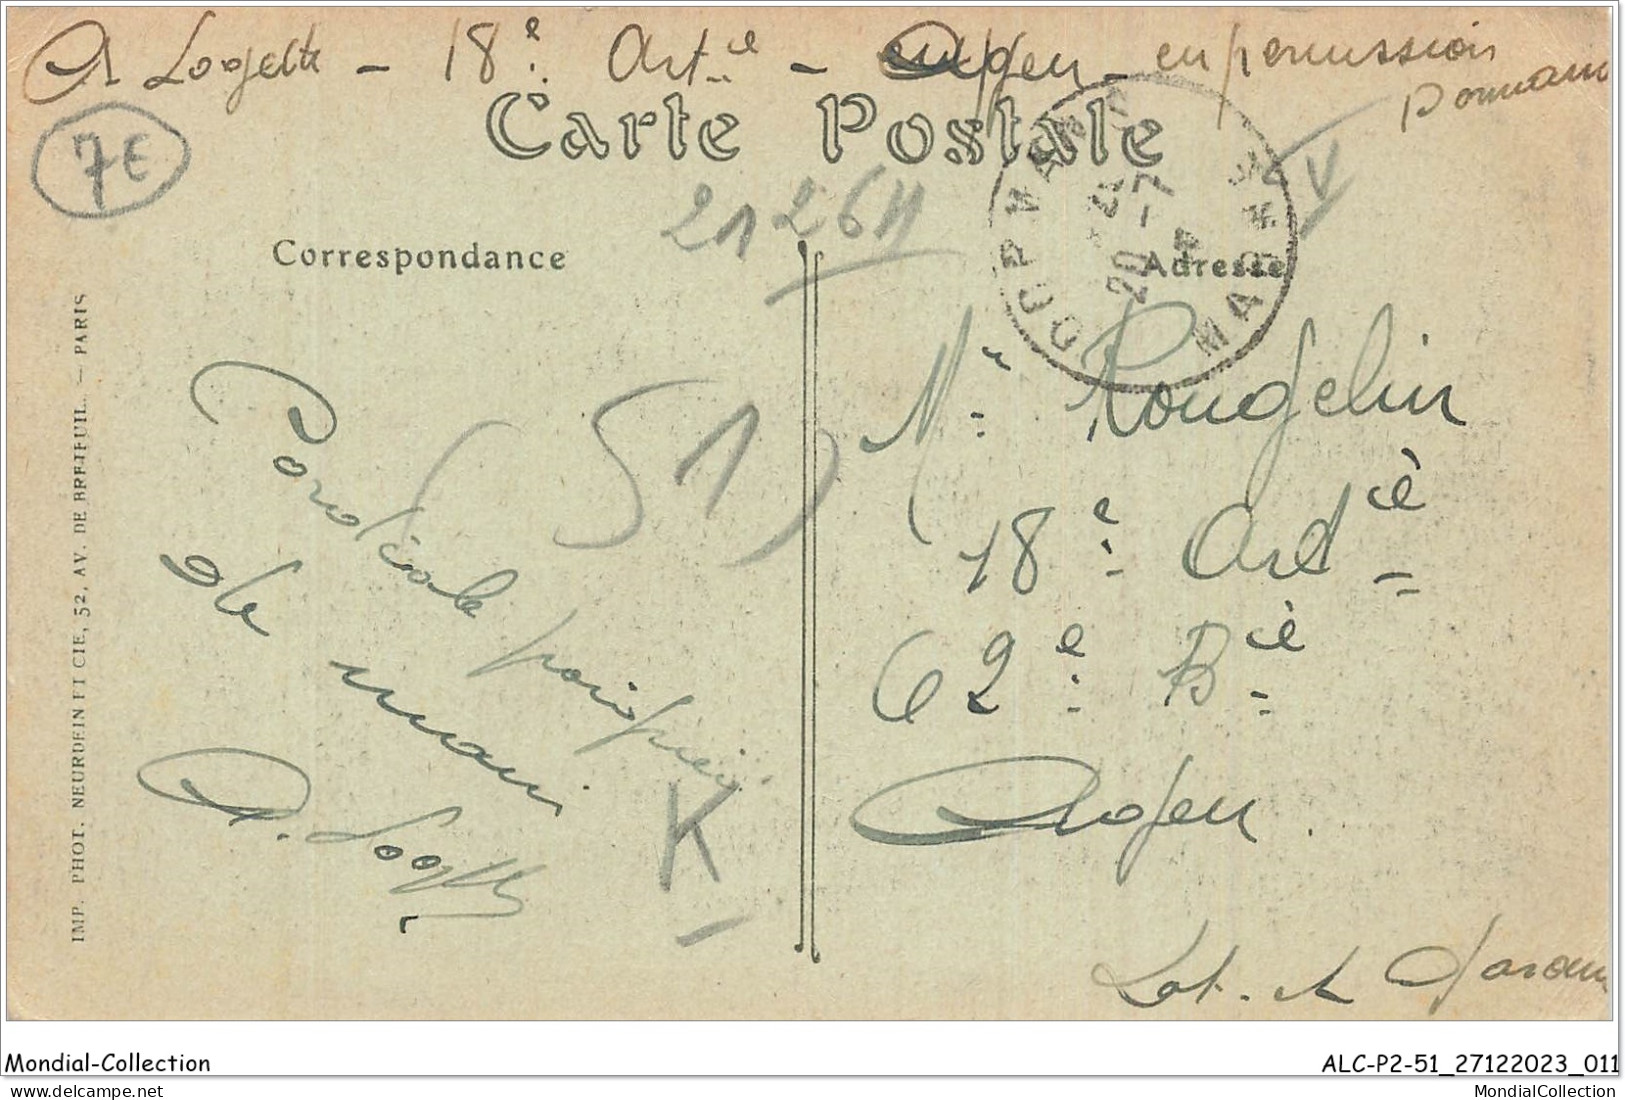 A Loogette - 18e Artie - Agen - en permission
Carte Postale
7€
21 26 11
V
DORMANS
20 -7
MARNE
Correspondance
Adresse
IMP. PHOT. NEURDEIN ET CIE, 52, AV. DE BRETEUIL. — PARIS
51)
Mr Rougelin
18e Artie
62e Bie
Agen.
Cordiale poignée
de main
K
Lot. et Garonne
Mondial-Collection
ALC-P2-51_27122023_011
MondialCollection